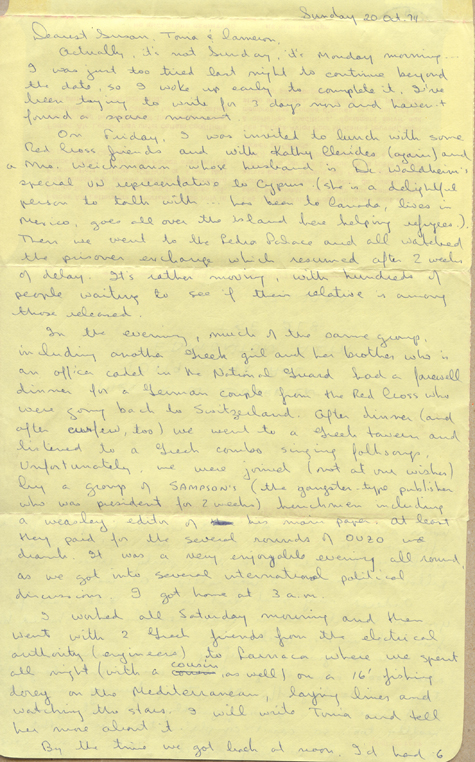 Sunday 20 Oct 74
Dearest Susan, Tonia & Cameron,
Actually, it's not Sunday, it's Monday morning...
I was just too tired last night to continue beyond
the date, so I woke up early to complete it. I've
been trying to write for 3 days now and haven't
found a spare moment.
On Friday, I was invited to lunch with some
Red Cross friends and with Kathy Clerides (again) and
a Mrs. Weickmann whose husband is Dr. Waldheim's
special UN representative to Cyprus. (she is a delightful
person to talk with... has been to Canada, lives in
Mexico, goes all over the island here helping refugees).
Then we went to the Ledra Palace and all watched
the prisoner exchange which resumed after 2 weeks
of delay. It's rather moving, with hundreds of
people waiting to see if their relative is among
those released.
In the evening, much of the same group,
including another Greek girl and her brother who is
an officer cadet in the National Guard had a farewell
dinner for a German couple from the Red Cross who
were going back to Switzerland. After dinner (and
after curfew, too) we went to a Greek tavern and
listened to a Greek combo singing folksongs.
Unfortunately, we were joined (not at our wishes)
by a group of SAMPSON'S (the gangster-type publisher
who was president for 2 weeks) henchmen including
a weasley editor of his main paper. At least
they paid for the several rounds of OUZO we
drank. It was a very enjoyable evening all round
as we got into several international political
discussions. I got home at 3 a.m.
I worked all Saturday morning and then
went with 2 Greek friends from the electrical
authority (engineers) to Larnaca where we spent
all night (with a cousin, as well) on a 16' fishing
dorey on the Mediterranean, laying lines and
watching the stars. I will write Tonia and tell
her more about it.
By the time we got back at noon, I'd had 6